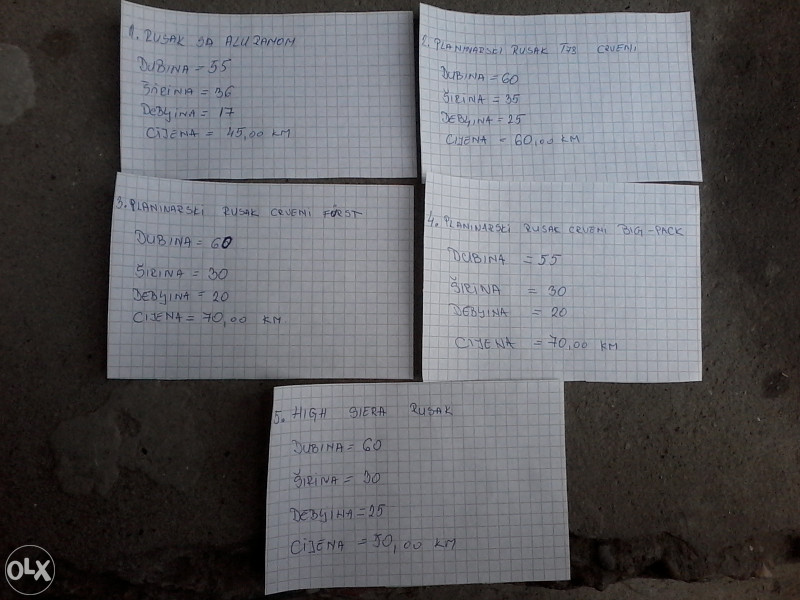 1. RUSAK SA ALU RAMOM
DUBINA = 55
ŠIRINA = 36
DEBLJINA = 17
CIJENA = 45,00 KM
2. PLANINARSKI RUSAK T78 CRVENI
DUBINA = 60
ŠIRINA = 35
DEBLJINA = 25
CIJENA = 60,00 KM
3. PLANINARSKI RUSAK CRVENI FÖRST
DUBINA = 60
ŠIRINA = 30
DEBLJINA = 20
CIJENA = 70,00 KM
4. PLANINARSKI RUSAK CRVENI BIG-PACK
DUBINA = 55
ŠIRINA = 30
DEBLJINA = 20
CIJENA = 70,00 KM
5. HIGH SIERA RUSAK
DUBINA = 60
ŠIRINA = 30
DEBLJINA = 25
CIJENA = 50,00 KM
OLX